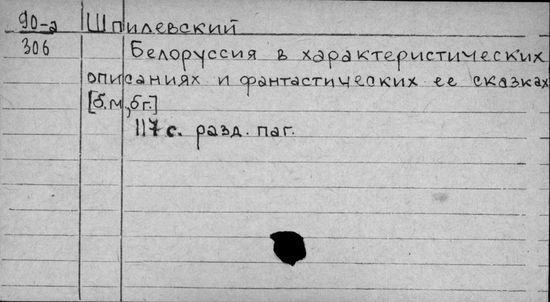 90-а Шпилевский
306 Белоруссия в характеристических
описаниях и фантастических ее сказках
[б.м., б г.]
117 с. разд. паг.